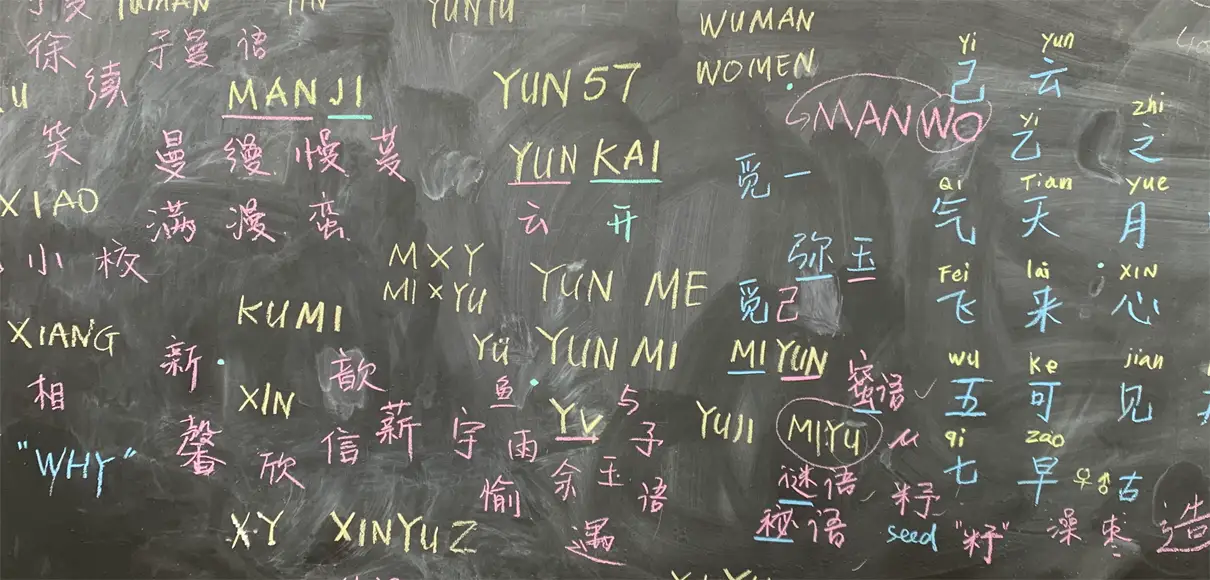 YUNYU
WUMAN
徐 子曼 语
WOMEN
Yi yun
己 云
续
MANJI
YUN57
SMANWO
笑 曼 缦 慢 蔓
YUN KAI
yi zhi
乙 之
觅一
XIAO
满 漫 蛮
云 开
Qi Tian yue
气 天 月
小 校
MXY
MI×YU
YUN ME
弥 玉
Fei lai XIN
飞 来 心
KUMI
觅己
XIANG
新 歆
Yü YUN MI
MIYUN
wu ke jian
五 可 见
相
XIN
鱼
蜜语
馨 欣 信 薪 宇 雨
Yv 5
子
YUJI
MIYU
qi zao
七 早 ♀♂ 古
"WHY"
愉 余 玉 语
谜语
籽
XY XINYUZ
遇
秘语
seed "籽"
澡 枣 造